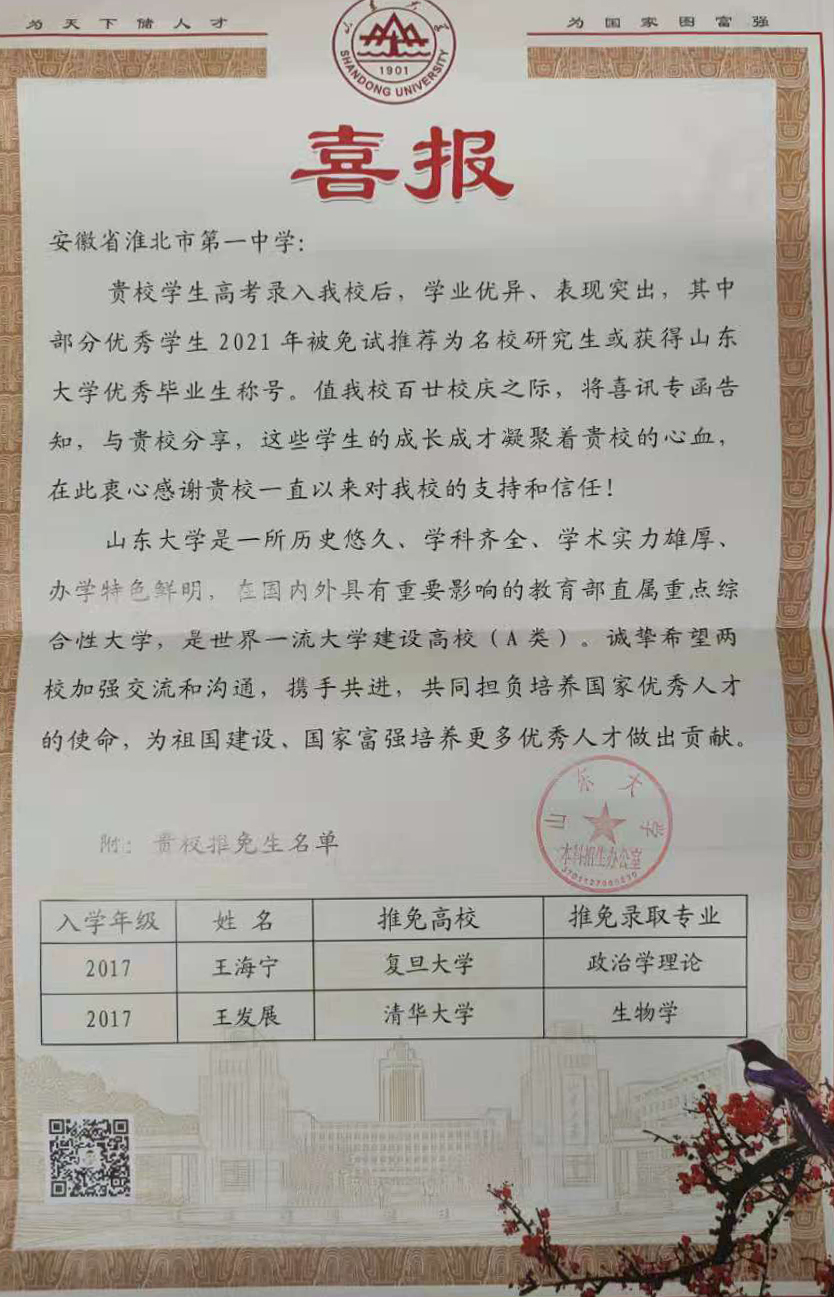 为天下储人才
为国家图富强
山东大学
1901
SHANDONG UNIVERSITY
喜报
安徽省淮北市第一中学：
贵校学生高考录入我校后，学业优异、表现突出，其中
部分优秀学生2021年被免试推荐为名校研究生或获得山东
大学优秀毕业生称号。值我校百廿校庆之际，将喜讯专函告
知，与贵校分享，这些学生的成长成才凝聚着贵校的心血，
在此衷心感谢贵校一直以来对我校的支持和信任！
山东大学是一所历史悠久、学科齐全、学术实力雄厚、
办学特色鲜明，在国内外具有重要影响的教育部直属重点综
合性大学，是世界一流大学建设高校（A类）。诚挚希望两
校加强交流和沟通，携手共进，共同担负培养国家优秀人才
的使命，为祖国建设、国家富强培养更多优秀人才做出贡献。
山东大学
本科招生办公室
附：贵校推免生名单
入学年级 姓名 推免高校 推免录取专业
2017 王海宁 复旦大学 政治学理论
2017 王发展 清华大学 生物学